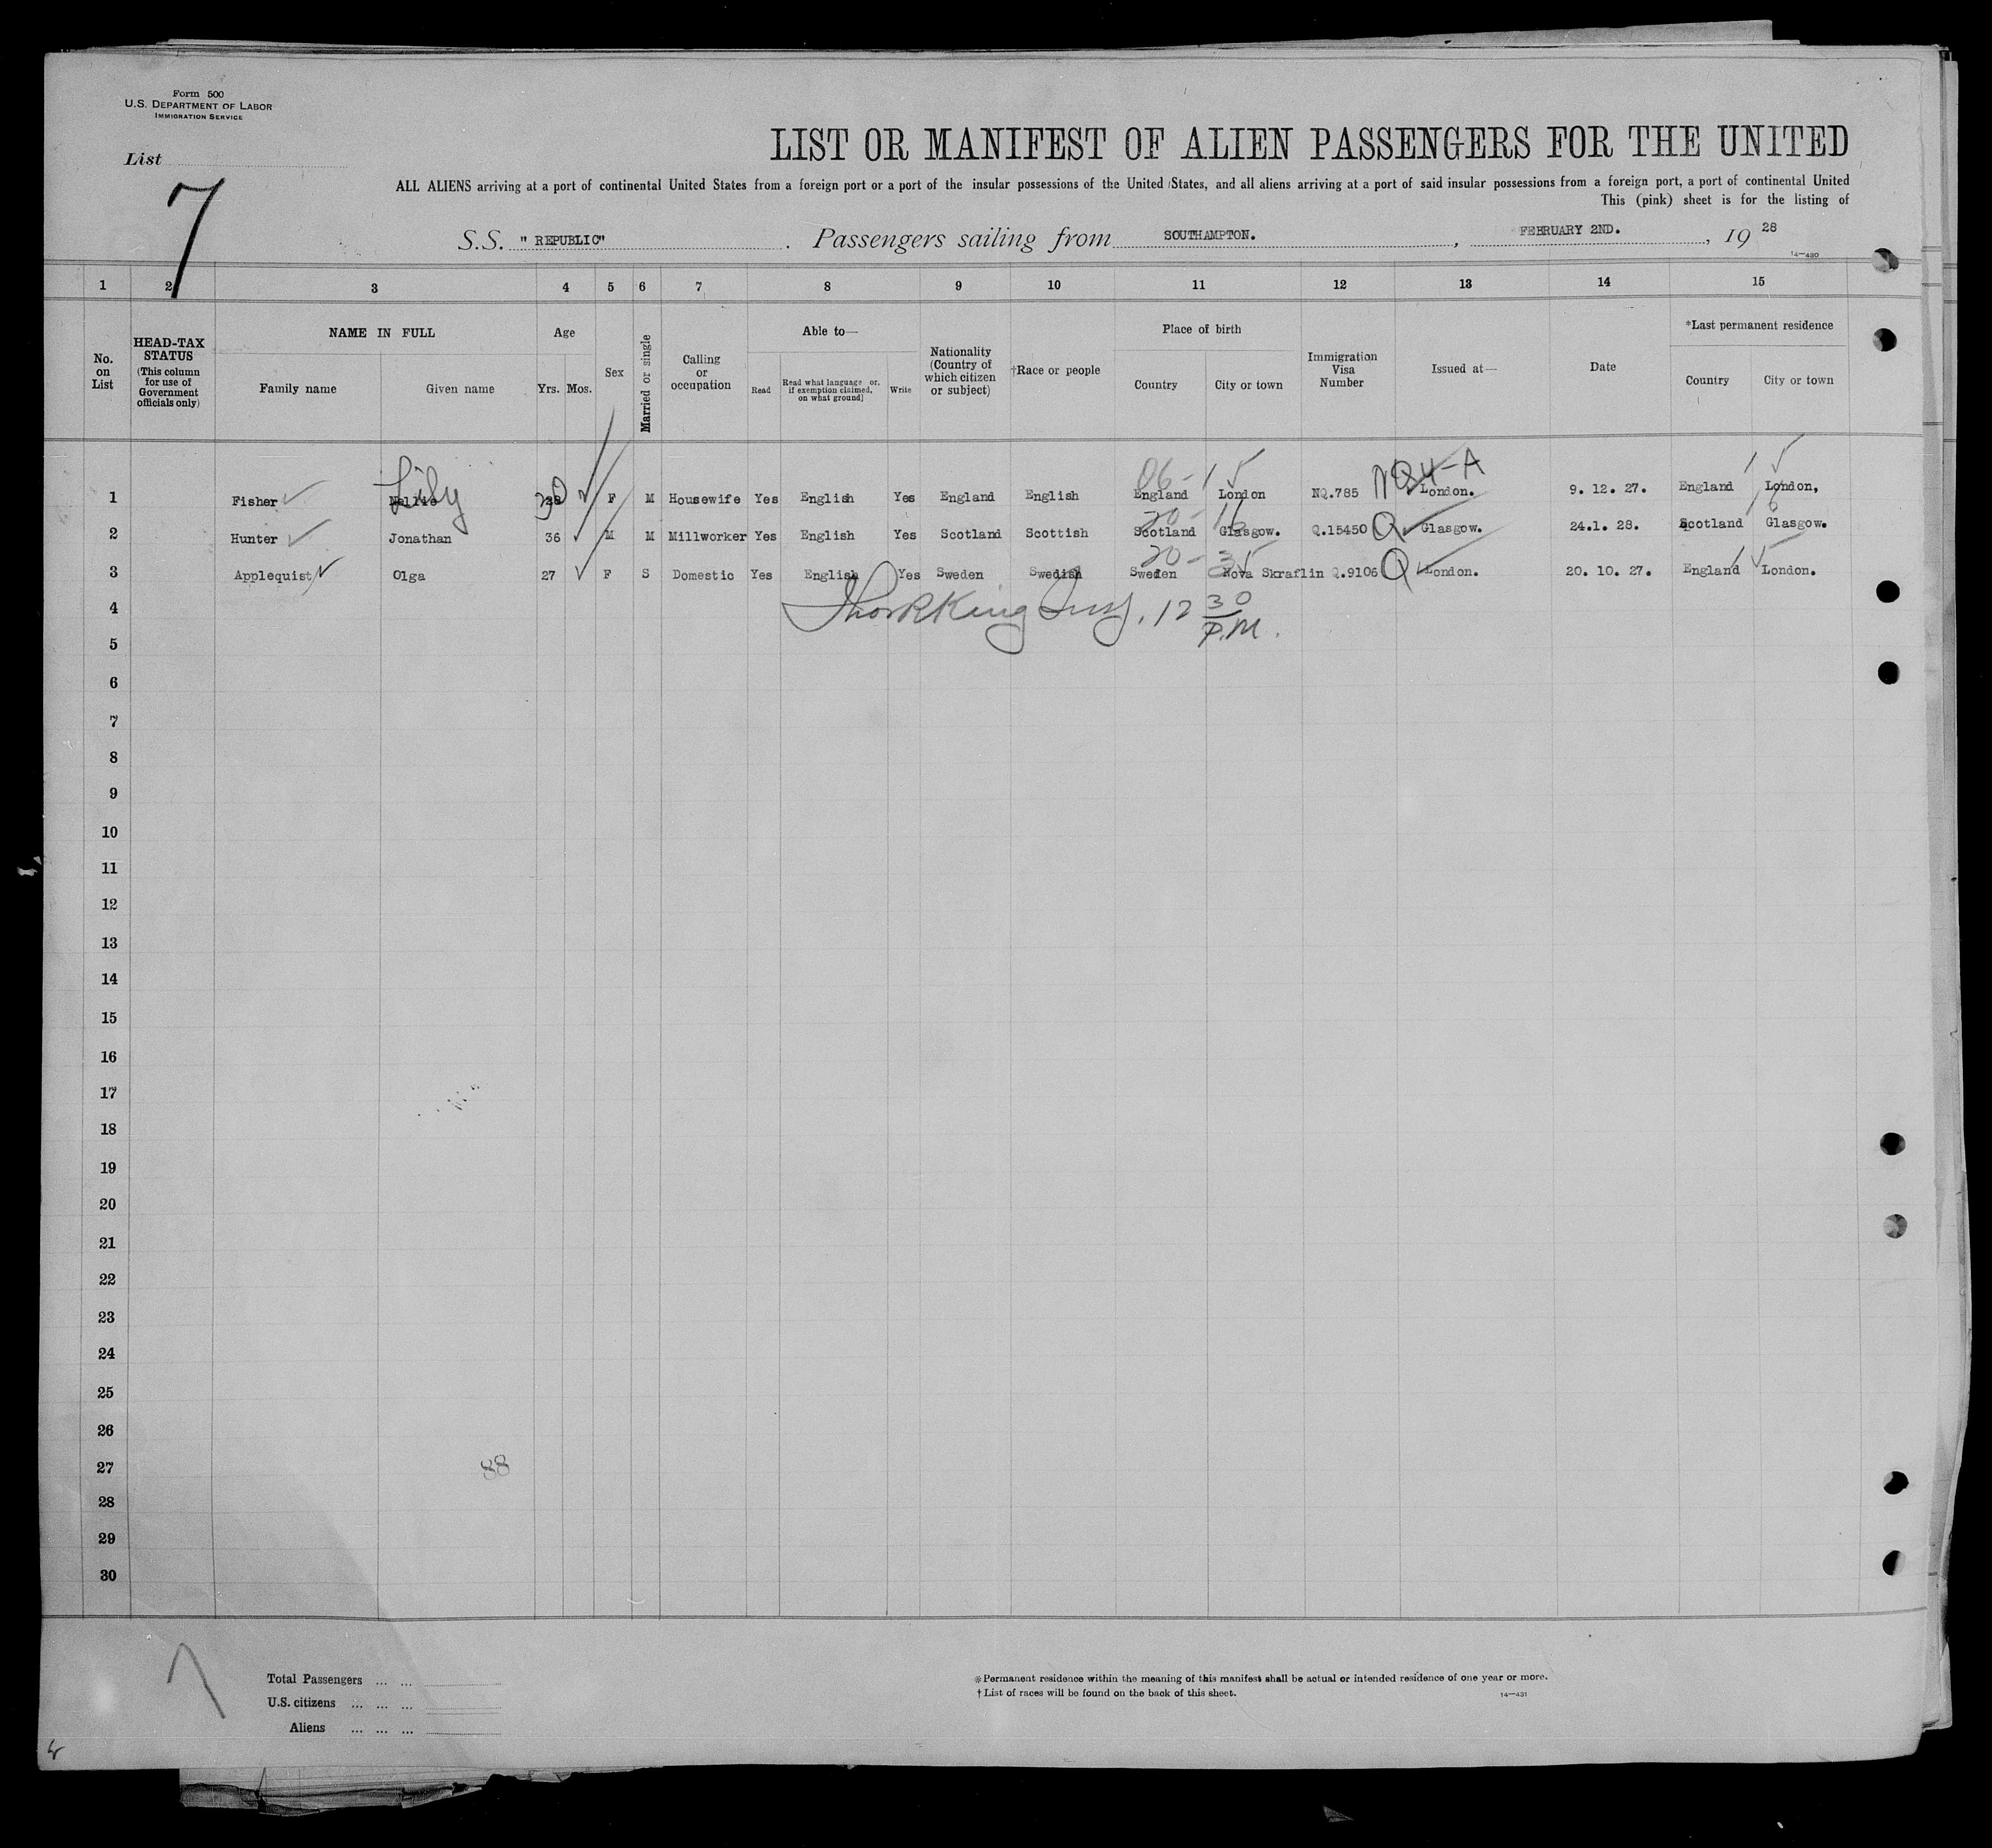 Form 500
U.S. DEPARTMENT OF LABOR
IMMIGRATION SERVICE
List
7
LIST OR MANIFEST OF ALIEN PASSENGERS FOR THE UNITED
ALL ALIENS arriving at a port of continental United States from a foreign port or a port of the insular possessions of the United States, and all aliens arriving at a port of said insular possessions from a foreign port, a port of continental United
This (pink) sheet is for the listing of
S.S. "REPUBLIC". Passengers sailing from SOUTHAMPTON., FEBRUARY 2ND., 19 28
14-430
1 2 3 4 5 6 7 8 9 10 11 12 13 14 15
No. on List
HEAD-TAX STATUS (This column for use of Government officials only)
NAME IN FULL
Family name Given name
Age
Yrs. Mos.
Sex
Married or single
Calling or occupation
Able to—
Read Read what language or, if exemption claimed, on what ground] Write
Nationality (Country of which citizen or subject)
†Race or people
Place of birth
Country City or town
Immigration Visa Number
Issued at—
Date
*Last permanent residence
Country City or town
Lily 06-1 NQ4-A
1 Fisher Nellie 30 F M Housewife Yes English Yes England English England London NQ.785 London. 9. 12. 27. England London,
20-16
2 Hunter Jonathan 36 M M Millworker Yes English Yes Scotland Scottish Scotland Glasgow. Q.15450 Q Glasgow. 24.1. 28. Scotland Glasgow.
20-3
3 Applequist Olga 27 F S Domestic Yes English Yes Sweden Swedish Sweden Nova Skraflin Q.9106 Q London. 20. 10. 27. England London.
4 King 12 30 P.M.
5
6
7
8
9
10
11
12
13
14
15
16
17
18
19
20
21
22
23
24
25
26
27 88
28
29
30
Total Passengers ... ...
U.S. citizens ... ... ...
Aliens ... ... ...
*Permanent residence within the meaning of this manifest shall be actual or intended residence of one year or more.
†List of races will be found on the back of this sheet.
14-431